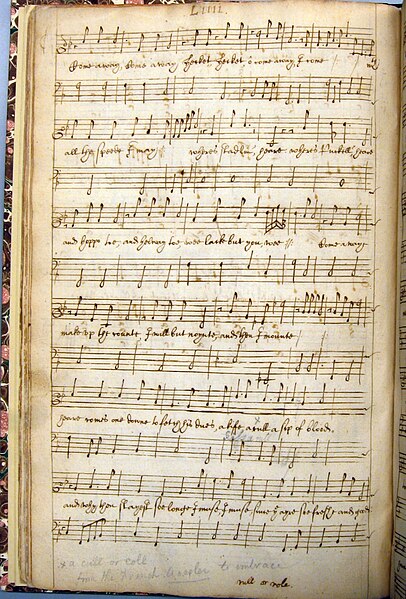 LIIII.
Come away Come away Heckat Heckat o come away I come
all the speede I may wheres stadlin heare wheres Puckell heare
and hopp too, and helway too wee lack but you, wee Come away
make up the counte, I will but noynte, and then I mounte
heare comes one downe to fetch his dues a kisse a cull a sip of blood.
and why thou stayest soe longe I muse I muse since th ayre soe fresh and good
x a cull or coll
from the French accoler to embrace
cull or cole